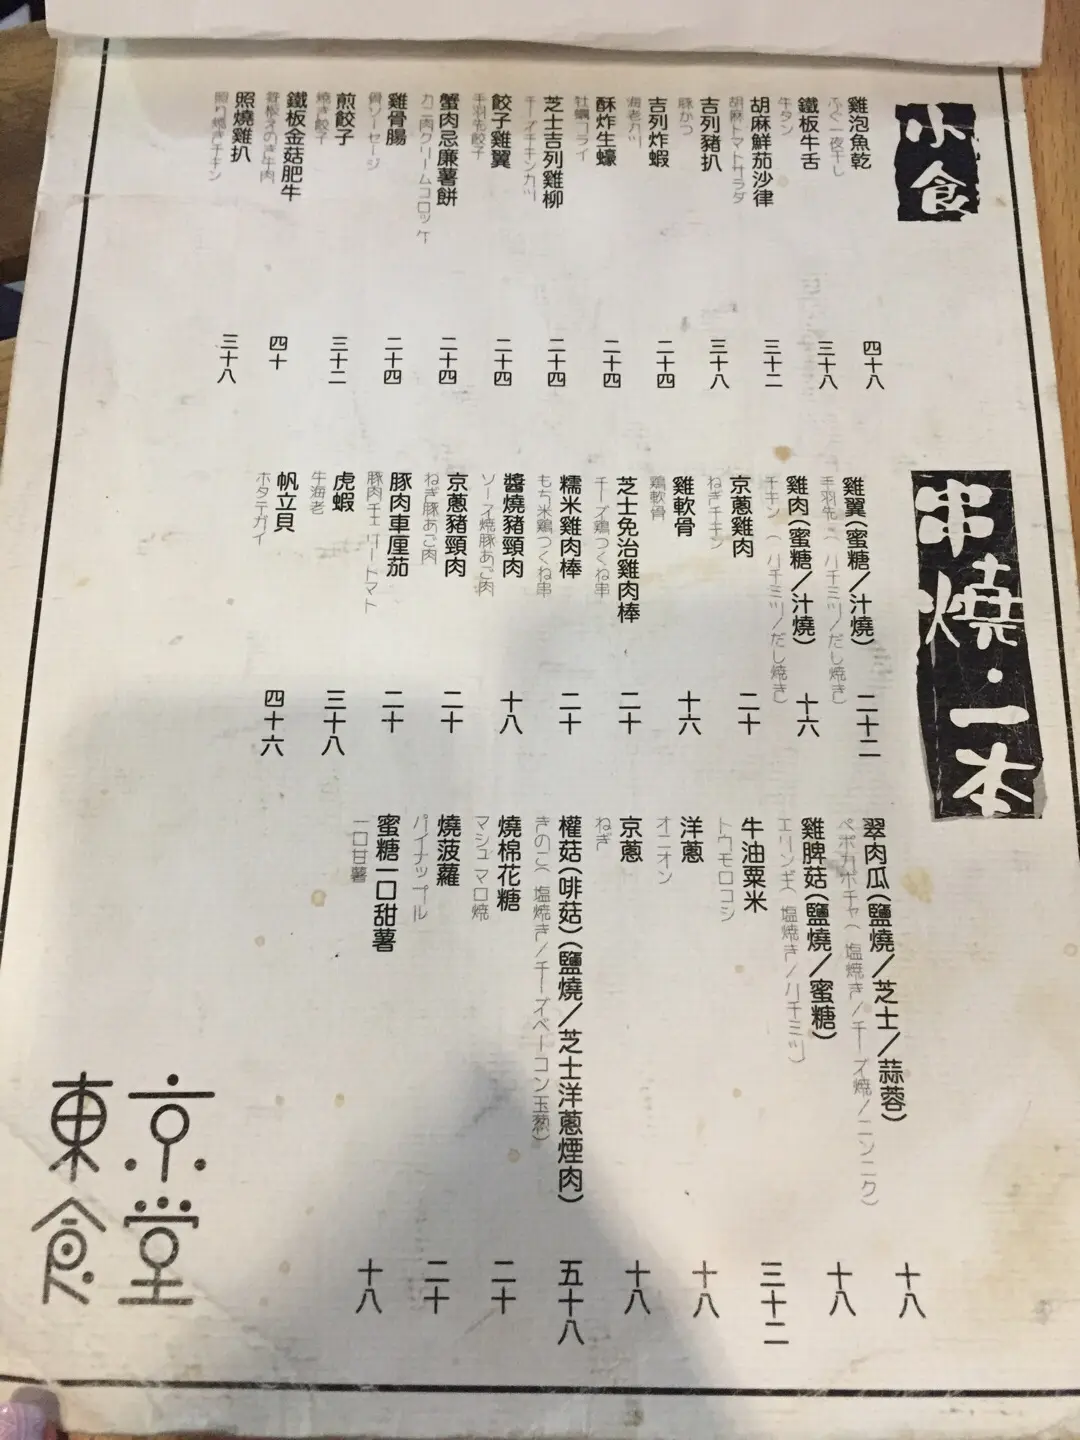 小食
雞泡魚乾
ふぐ一夜干し
四十八
鐵板牛舌
牛タン
三十八
胡麻鮮茄沙律
胡麻トマトサラダ
三十二
吉列豬扒
豚かつ
三十八
吉列炸蝦
海老カツ
二十四
酥炸生蠔
牡蠣フライ
二十四
芝士吉列雞柳
チーズチキンカツ
二十四
餃子雞翼
手羽先餃子
二十四
蟹肉忌廉薯餅
カニ肉クリームコロッケ
二十四
雞骨腸
骨ソーセージ
二十四
煎餃子
焼き餃子
三十二
鐵板金菇肥牛
四十
照燒雞扒
照り焼きチキン
三十八
串燒・一本
雞翼(蜜糖/汁燒)
手羽先(ハチミツ/だし焼き)
二十二
雞肉(蜜糖/汁燒)
チキン(ハチミツ/だし焼き)
十六
京蔥雞肉
ねぎチキン
二十
雞軟骨
鶏軟骨
十六
芝士免治雞肉棒
チーズ鶏つくね串
二十
糯米雞肉棒
もち米鶏つくね串
二十
醬燒豬頸肉
ソース焼豚あご肉
十八
京蔥豬頸肉
ねぎ豚あご肉
二十
豚肉車厘茄
豚肉チェリートマト
二十
虎蝦
牛海老
三十八
帆立貝
ホタテガイ
四十六
翠肉瓜(鹽燒/芝士/蒜蓉)
ペポカボチャ(塩焼き/チーズ焼/ニンニク)
十八
雞脾菇(鹽燒/蜜糖)
エリンギ(塩焼き/ハチミツ)
十八
牛油粟米
トウモロコシ
三十二
洋蔥
オニオン
十八
京蔥
ねぎ
十八
權菇(啡菇)(鹽燒/芝士洋蔥煙肉)
きのこ(塩焼き/チーズベーコン玉葱)
五十八
燒棉花糖
マシュマロ焼
二十
燒菠蘿
パイナップル
二十
蜜糖一口甜薯
一口甘薯
十八
東京
食堂